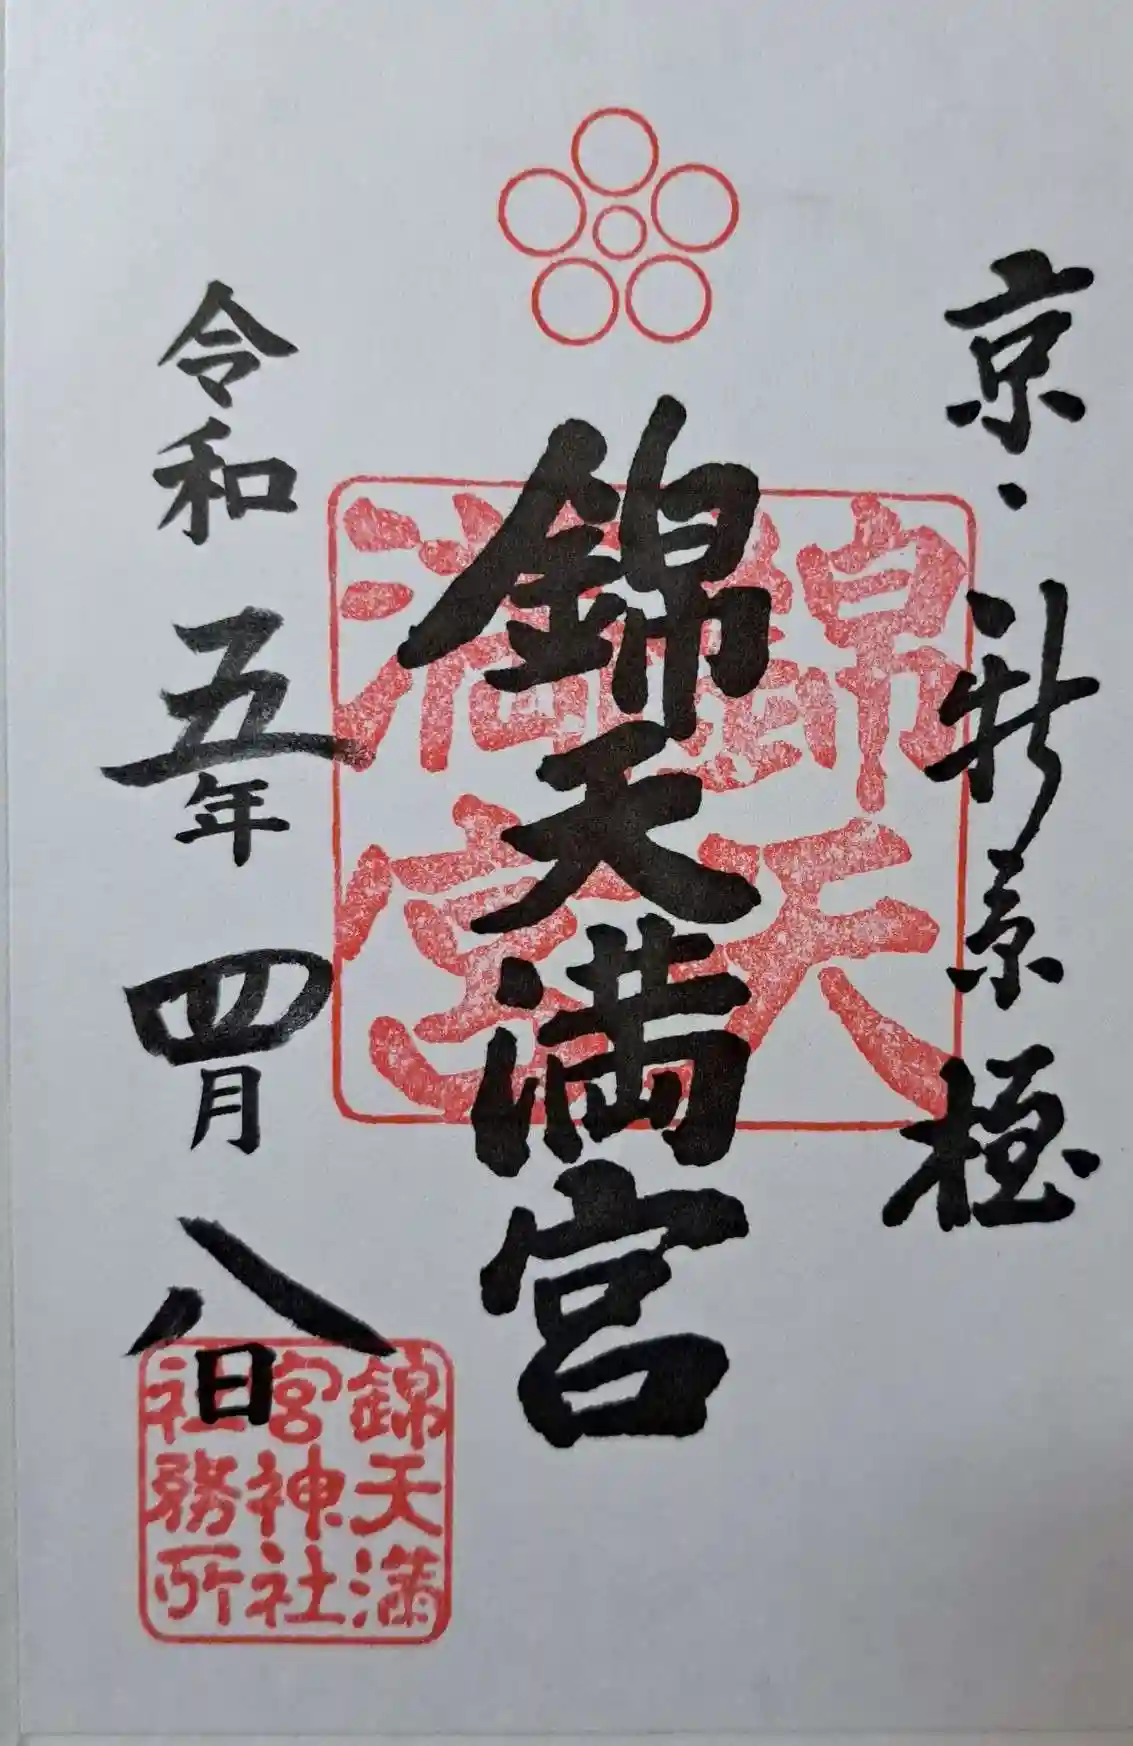 京・新京極
錦天満宮
錦天満宮
令和五年四月八日
錦天満宮神社社務所